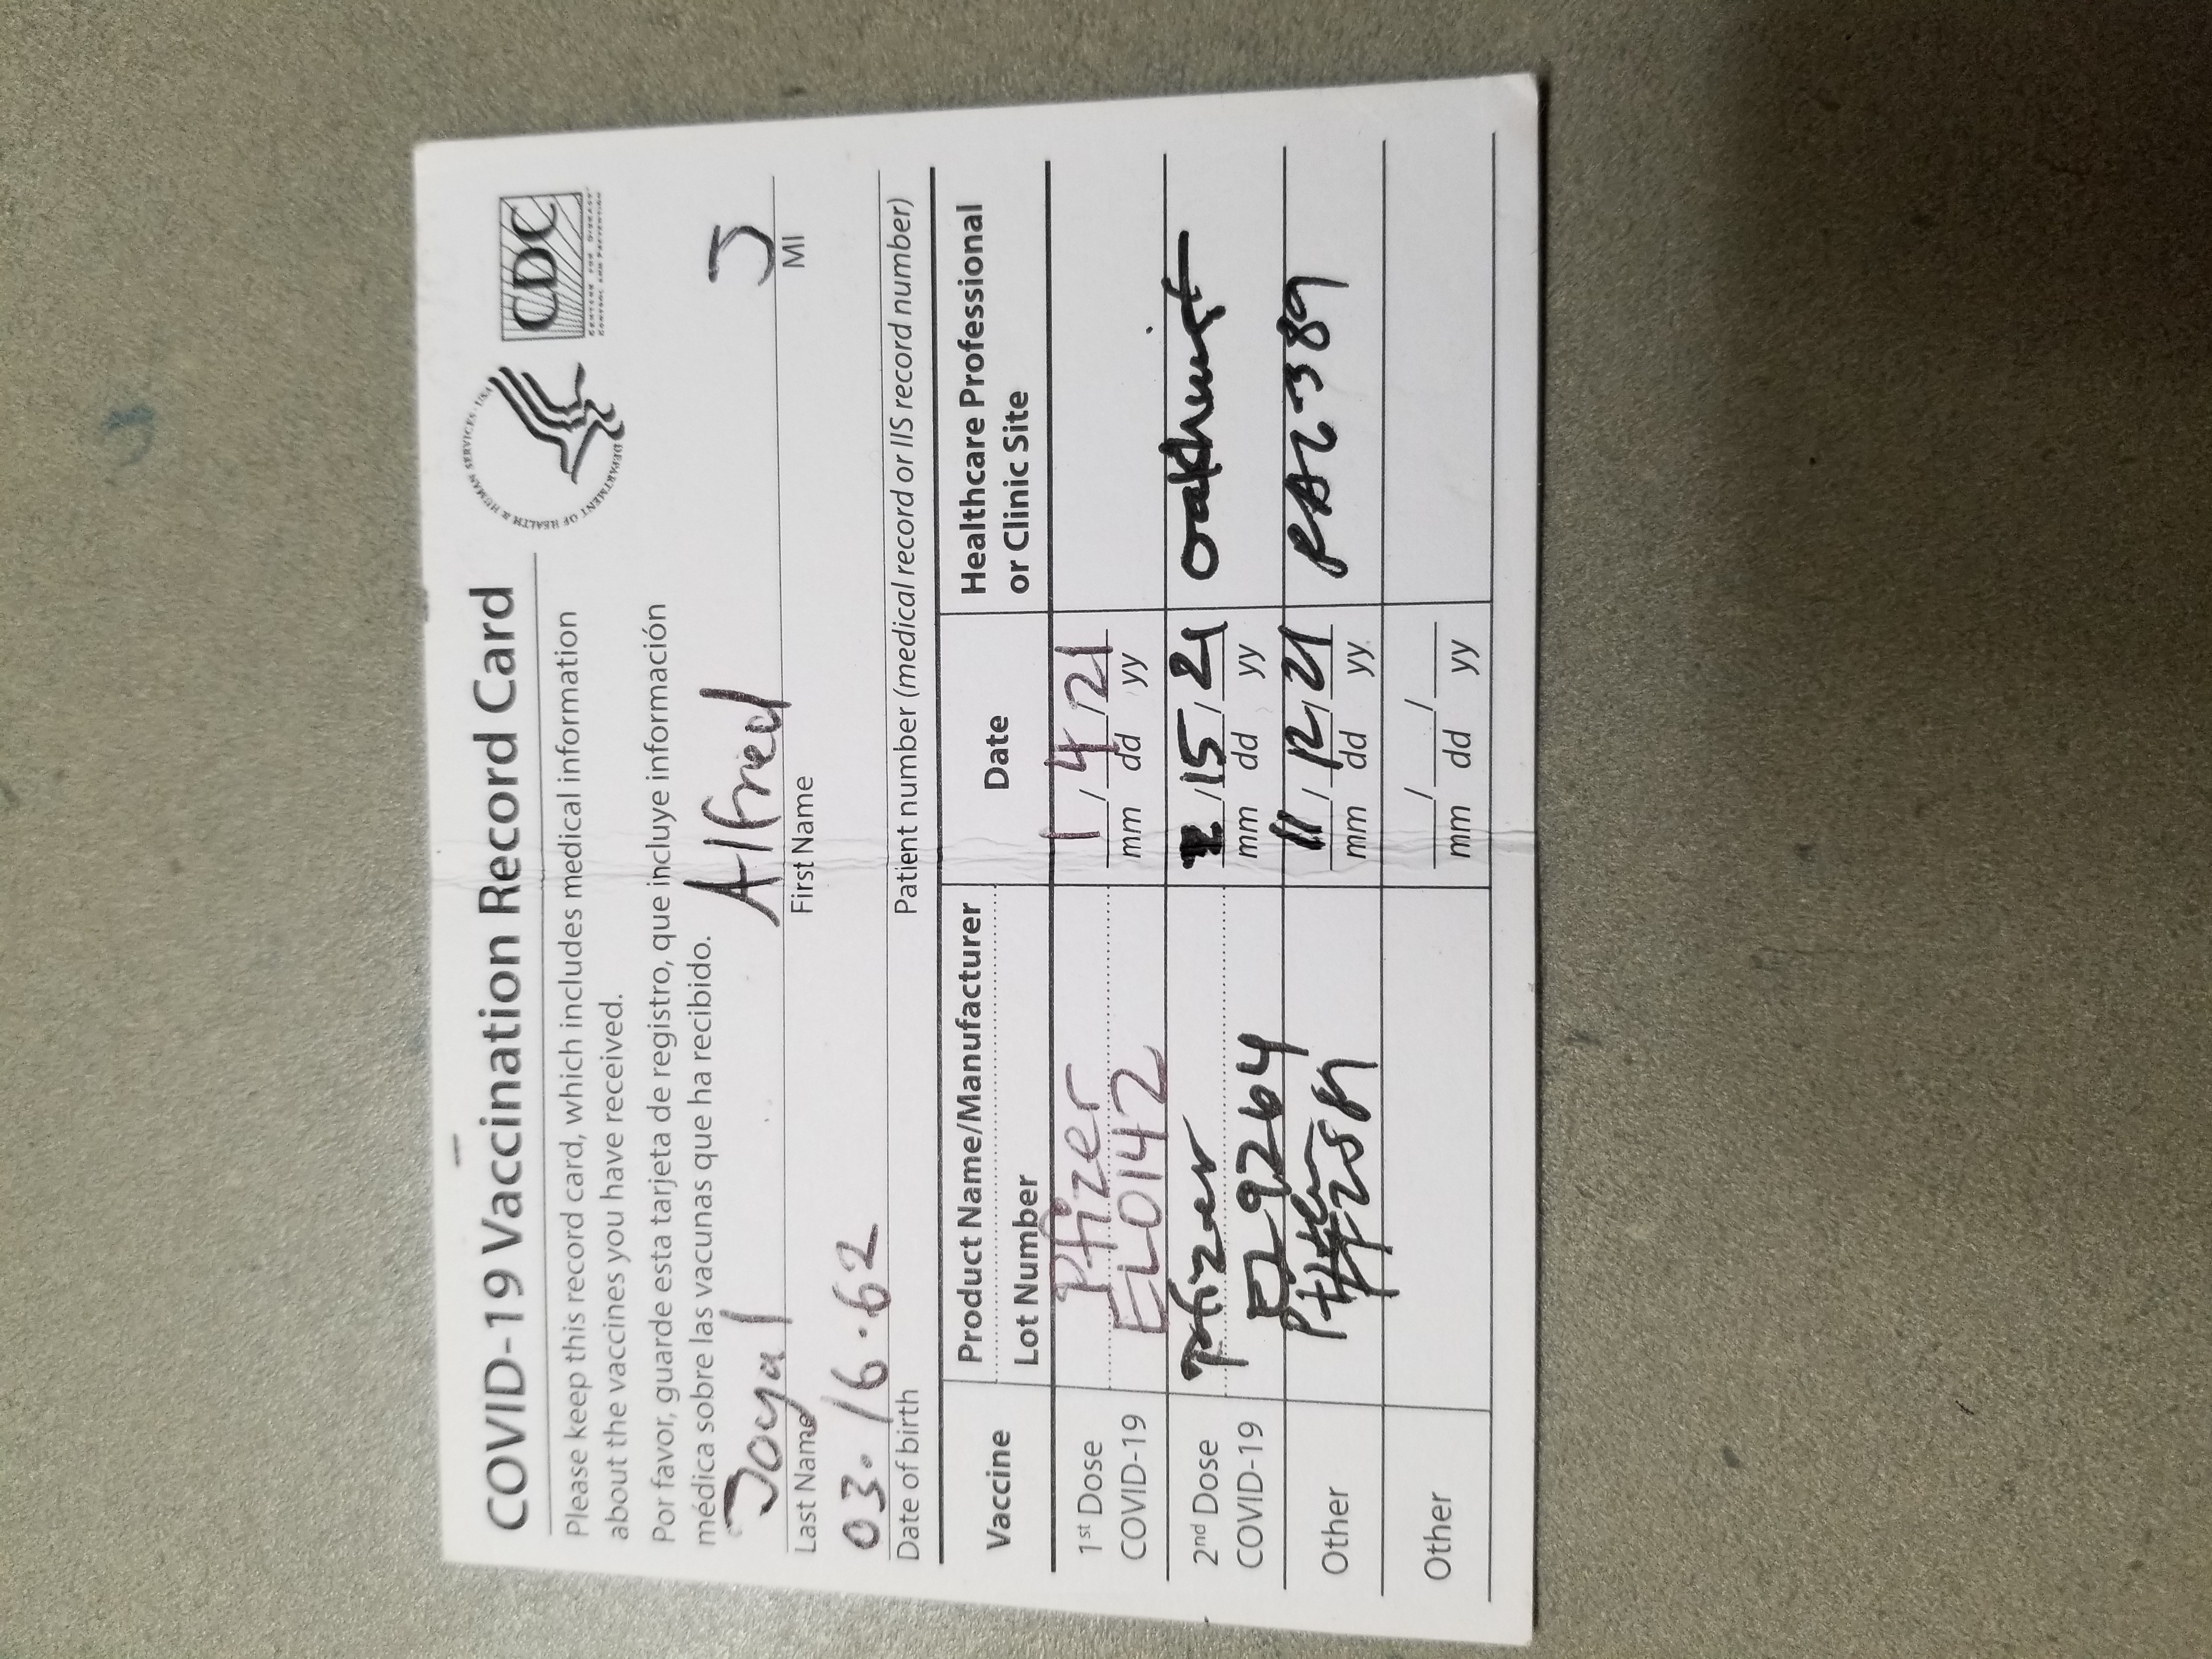 COVID-19 Vaccination Record Card
Please keep this record card, which includes medical information
about the vaccines you have received.
Por favor, guarde esta tarjeta de registro, que incluye información
médica sobre las vacunas que ha recibido.
DEPARTMENT OF HEALTH & HUMAN SERVICES · USA
CDC
CENTERS FOR DISEASE
CONTROL AND PREVENTION
Joyal Alfred J
Last Name First Name MI
03.16.62
Date of birth Patient number (medical record or IIS record number)
Vaccine Product Name/Manufacturer Date Healthcare Professional
Lot Number or Clinic Site
1st Dose Pfizer 1/4/21
COVID-19 EL0142 mm dd yy
2nd Dose Pfizer 2/15/21 Oakhurst
COVID-19 EL9264 mm dd yy
Other 11/12/21
mm dd yy
Other / /
mm dd yy